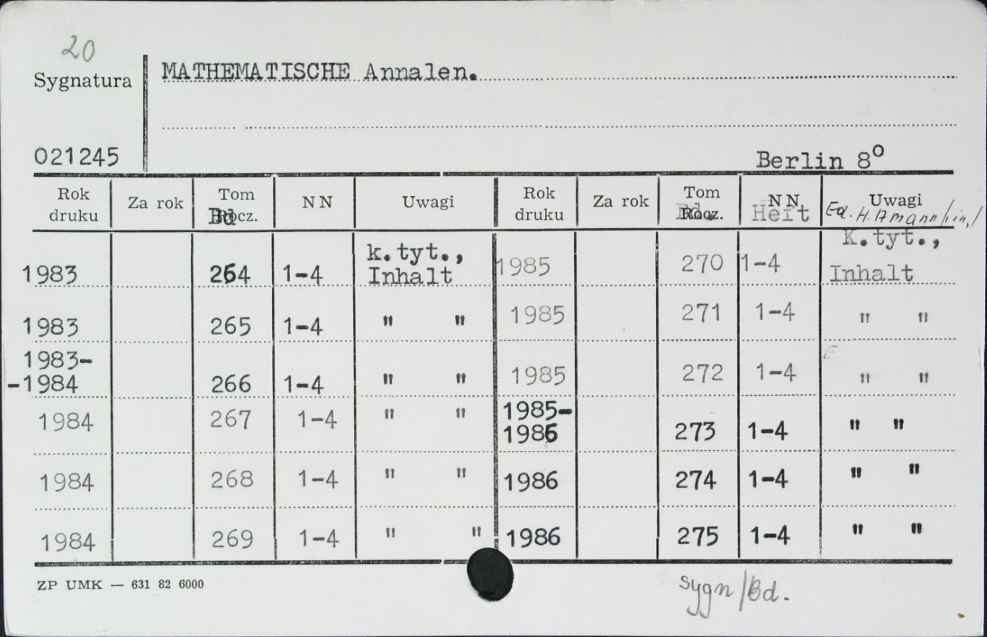 20
Sygnatura MATHEMATISCHE Annalen.
021245 Berlin 8º
Rok druku Za rok Tom Rocz. Bd NN Uwagi Rok druku Za rok Tom Rocz. Bd. NN Heft Uwagi
K.tyt., Inhalt
1983 264 1-4 k.tyt., Inhalt 1985 270 1-4
1983 265 1-4 " " 1985 271 1-4 " "
1983--1984 266 1-4 " " 1985 272 1-4 " "
1984 267 1-4 " " 1985-1986 273 1-4 " "
1984 268 1-4 " " 1986 274 1-4 " "
1984 269 1-4 " " 1986 275 1-4 " "
ZP UMK — 631 82 6000
sygn/Bd.